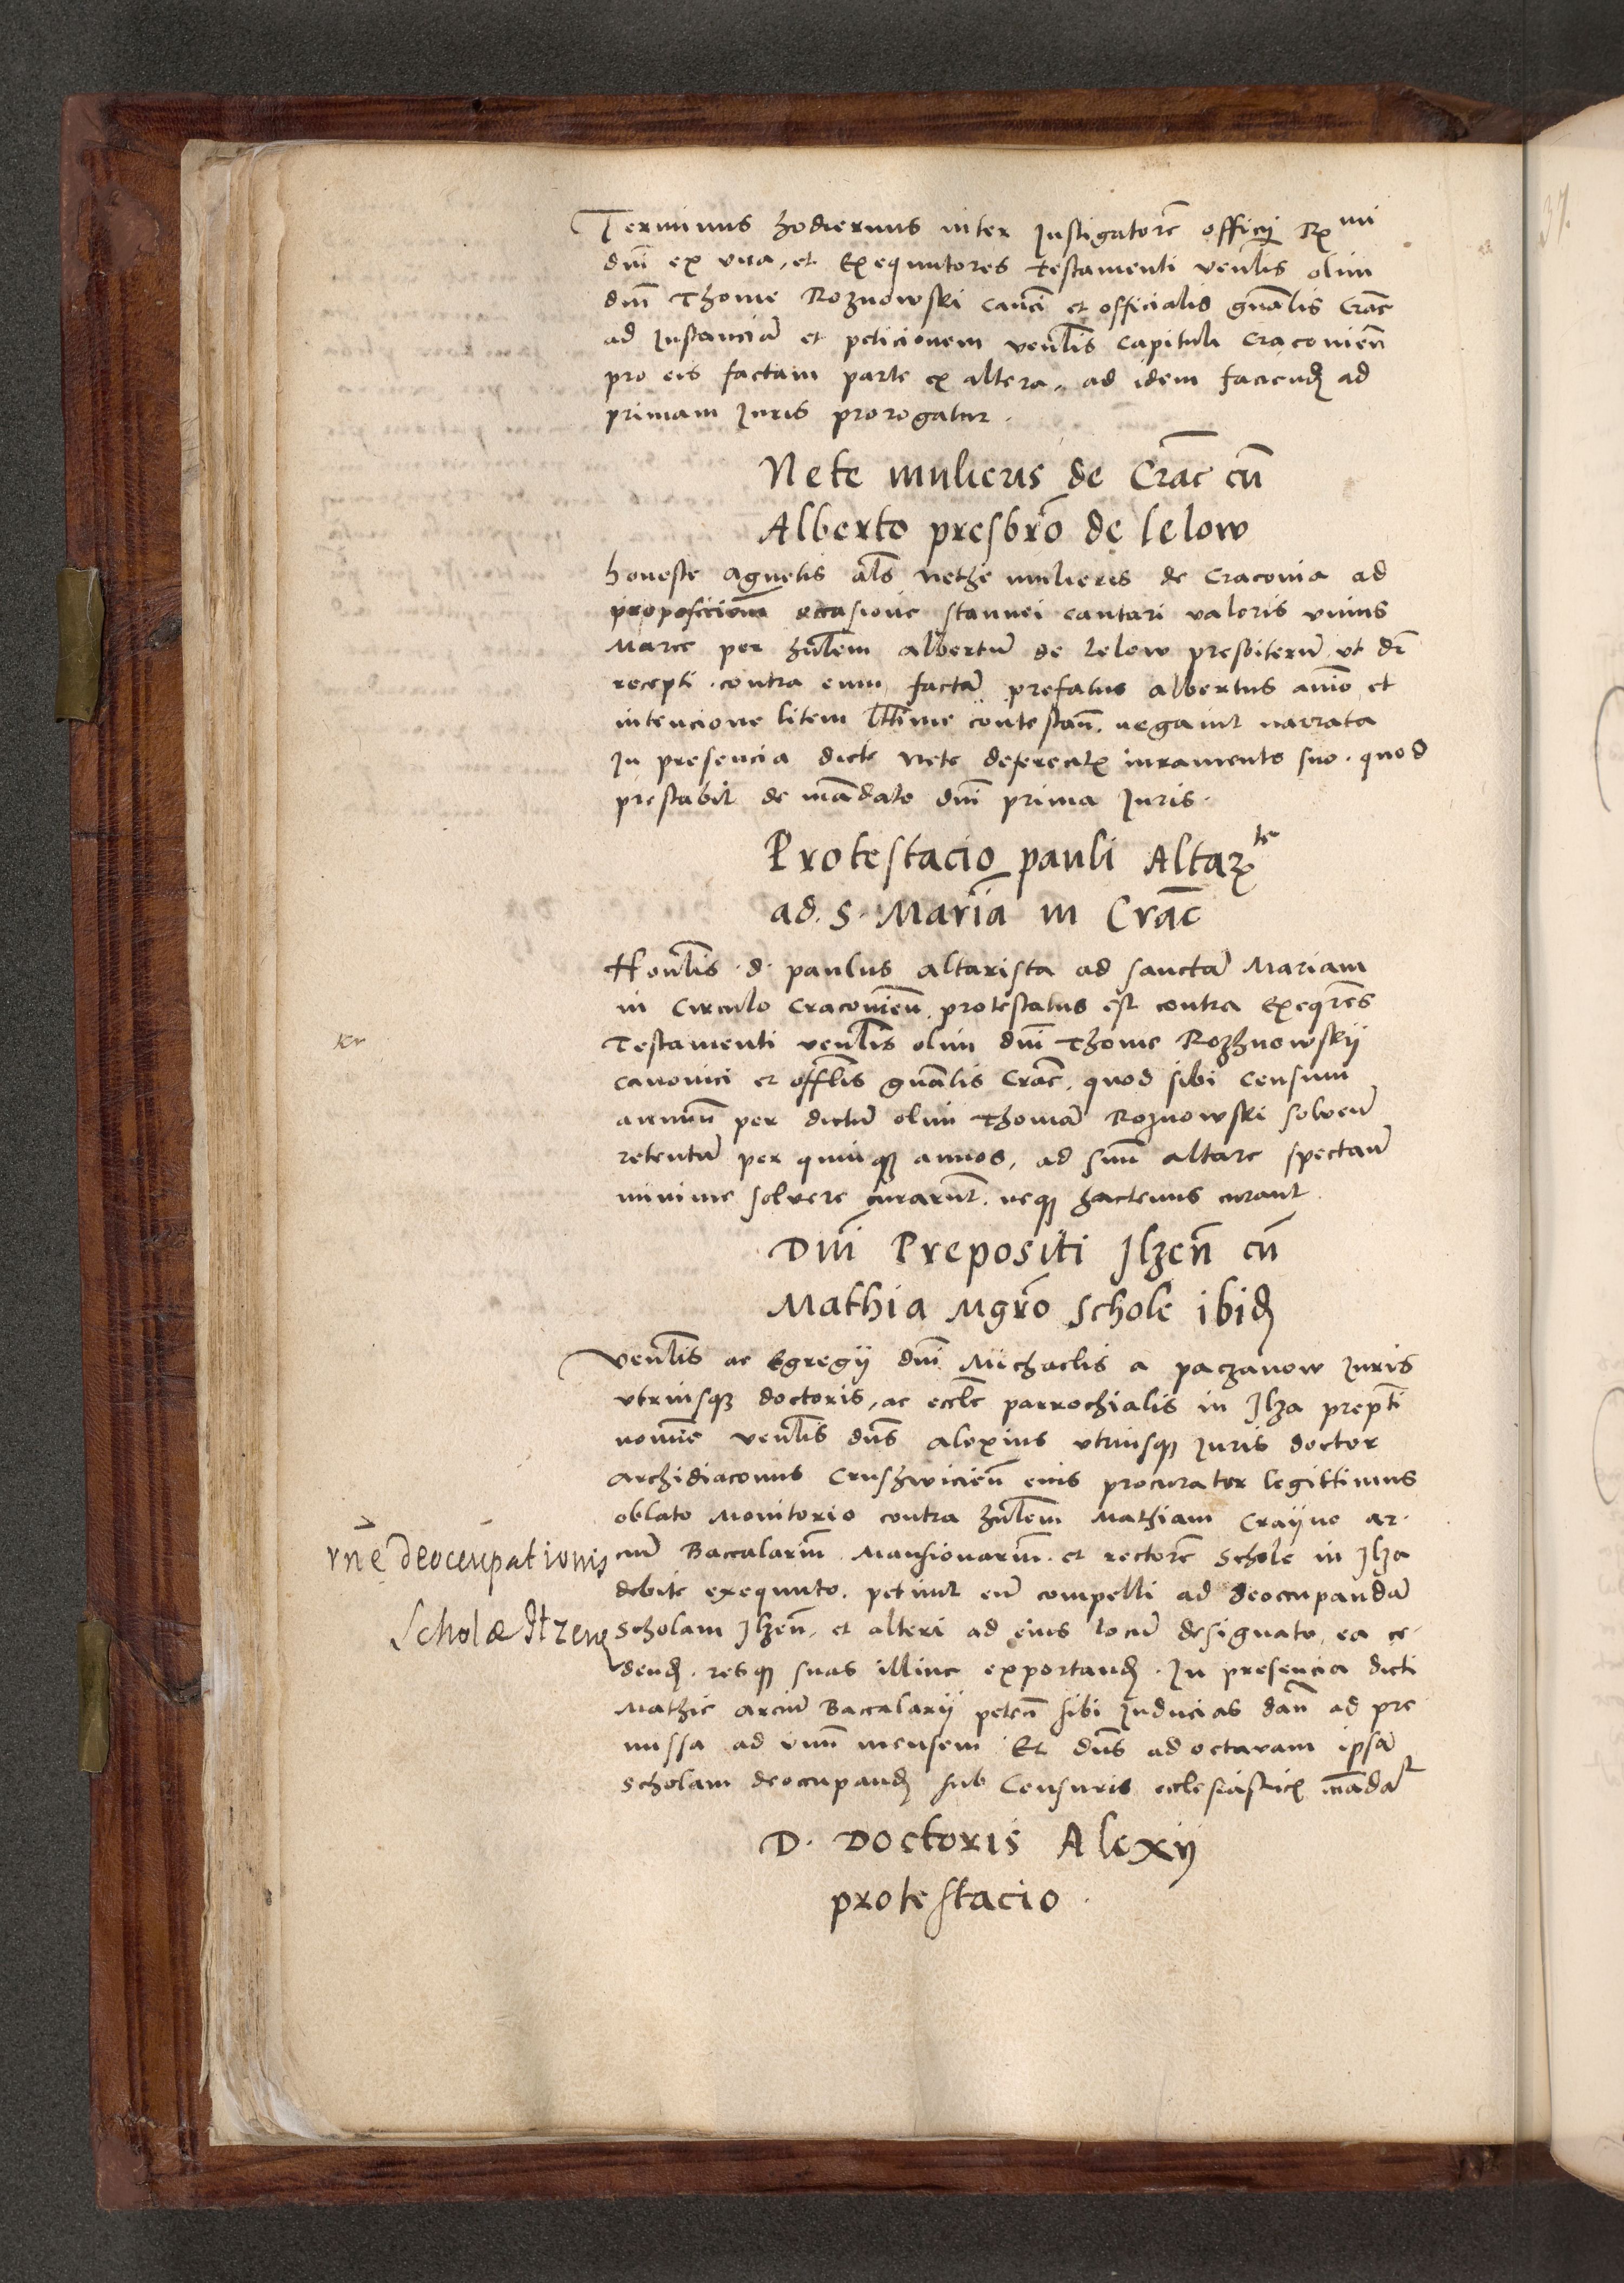 Terminus hodiernus inter Instigatorē officij Rmi
dnī ex vna, et Exequutores testamenti venlis olim
dnī Thome Roznowski canci et officialis gnālis Crac
ad Instanciā et peticionem venlis Capituli Cracovien̄
pro eis factam parte ex altera, ad idem faciend ad
primam Iuris prorogatur.
Nete mulieris de Crac cū
Alberto presbrō de lelow
honeste Agnetis als Nethe mulieris de Cracovia ad
proposicionem occasione stannei cantari valoris vnius
Marce per hūlem Albertū de Lelow presbiterū vt dr̄
recepti contra eum factā prefatus Albertus aīo et
intencione litem lttime contestan̄. negauit narrata
In presencia dicte Nete deferentis iuramento suo. quod
prestabit de mādato dnī prima Iuris.
Protestacio pauli Altarte
ad. S. Mariā in Crac
Honlis d. paulus altarista ad sanctā Mariam
in Circulo Cracovien̄ protestatus est contra Exeqres
Testamenti venlis olim dnī Thome Rozhnowskij
canonici et offlis gnālis Crac. quod sibi Censum
annuū per dictū olim Thomā Roznowski solvēn
retentū per quinq annos, ad suū altare spectan̄
minime solvere curarūt. neq hactenus curant.
Dnī Prepositi Ilzen̄ cū
Mathia Mgrō Schole ibid
Venlis ac Egregij dnī Michaelis a paczanow Iuris
vtriusq doctoris, ac eccle parrochialis in Ilza prepti
nomīe venlis dn̄s Alexius vtriusq Iuris doctor
Archidiaconus Crushwicien̄ eius procurator legittimus
oblato Monitorio contra hūlem Mathiam Crayno ar-
ciū Baccalariū Mansionariū. et rectorē Schole in Ilza
debite exequuto. petiuit eū compelli ad deoccupandā
Scholam Ilzen̄. et alteri ad eius locū designato, ea ce-
dend. resq suas illinc exportand. In presencia dicti
Mathie arciū Baccalarij peten̄ sibi Inducias dari ad pre
missa ad vnū mensem Et dn̄s ad octavam ipsā
Scholam deoccupand sub Censuris ecclesiasticis mādat
D. Doctoris Alexij
protestacio.
Kr
rn̄e deoccupationis
Scholæ Iłzen